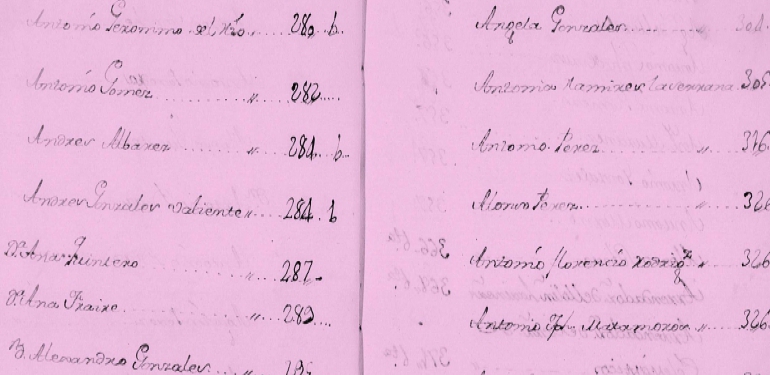 Antonio Geronimo del Río 280 b.
Antonio Gomez 282
Andres Albarez 284 b
Andres Gonzales Valiente 284 b
Da. Ana Quintero 287
Da. Ana Fraixe 289
D. Alexandro Gonzales
Angela Gonzales 304
Antonia Ramires Taverana 305
Antonio Perez 316
Alonso Perez 326
Antonio florencio Rodrigz 326
Antonio Jph. Matamoros 326